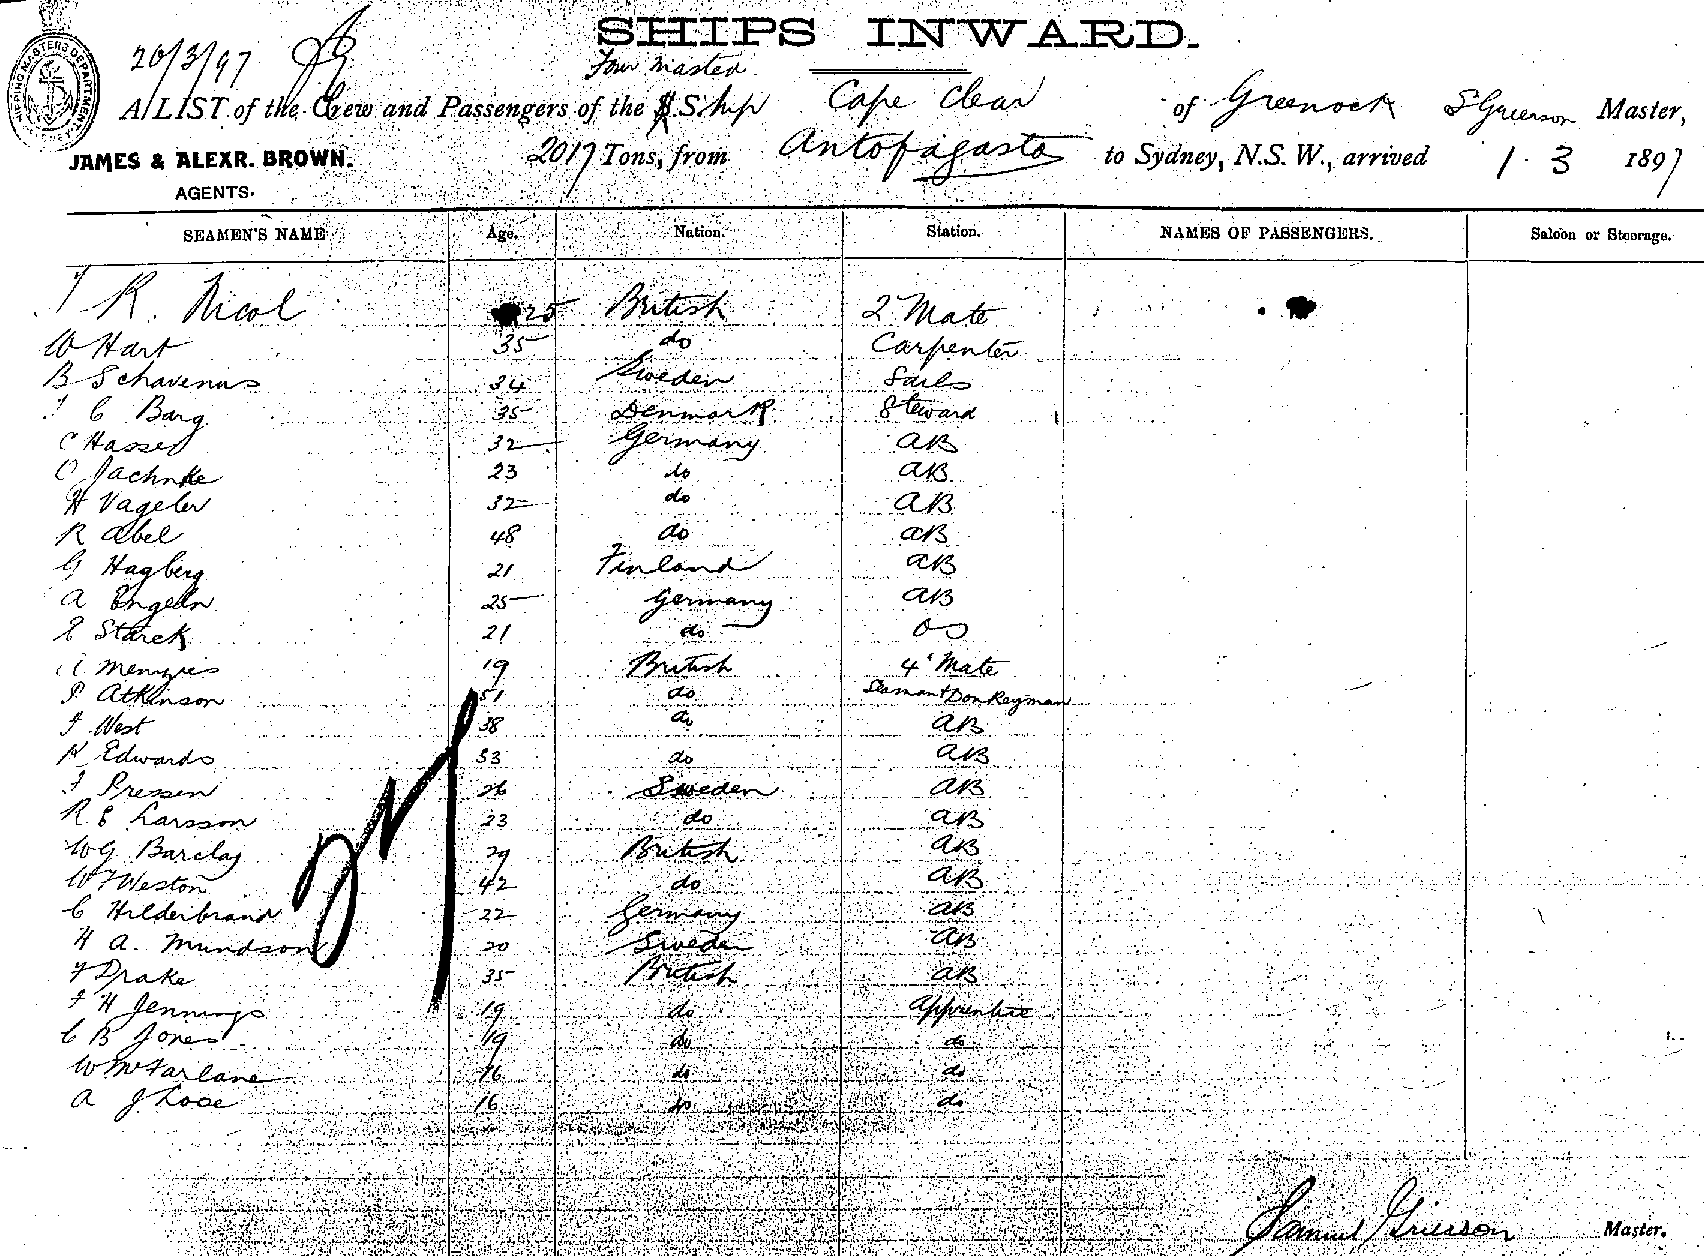 SHIPS INWARD.
20/3/97
Four Masted
SHIPPING MASTERS DEPARTMENT
A LIST of the Crew and Passengers of the S.Ship Cape Clear of Greenock S Grierson Master,
JAMES & ALEXR. BROWN. 2017 Tons, from Antofagasta to Sydney, N.S.W., arrived 1.3 1897
AGENTS.
SEAMEN'S NAME Age. Nation. Station. NAMES OF PASSENGERS. Saloon or Steerage.
R. Nicol 25 British 2 Mate
W Hart 35 do Carpenter
B Schavenus 34 Sweden Sails
C Barg 35 Denmark Steward
C Hasser 32 Germany AB
O Jachnke 23 do AB
H Vageler 32 do AB
R Abel 48 do AB
G Hagberg 21 Finland AB
A Engeln 25 Germany AB
E Starck 21 do OS
Menzies 19 British 4 Mate
P Atkinson 51 do Seaman & Donkeyman
West 38 do AB
Edwards 53 do AB
Pressen 26 Sweden AB
R E Larsson 23 do AB
W G Barclay 29 British AB
W Weston 42 do AB
C Hilderbrand 22 Germany AB
H A. Mundson 20 Sweden AB
Drake 35 British AB
H Jennings 19 do Apprentice
C B Jones 19 do do
W McFarlane 16 do do
A J. Loose 16 do do
Samuel Grierson Master.